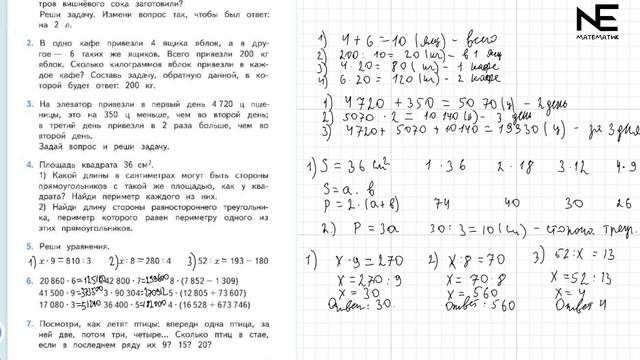 тров вишнёвого сока заготовили?
Реши задачу. Измени вопрос так, чтобы был ответ:
на 2 л.
2. В одно кафе привезли 4 ящика яблок, а в дру-
гое — 6 таких же ящиков. Всего привезли 200 кг
яблок. Сколько килограммов яблок привезли в каж-
дое кафе? Составь задачу, обратную данной, в ко-
торой будет ответ: 200 кг.
3. На элеватор привезли в первый день 4 720 ц пше-
ницы, это на 350 ц меньше, чем во второй день;
в третий день привезли в 2 раза больше, чем во
второй день.
Задай вопрос и реши задачу.
4. Площадь квадрата 36 см².
1) Какой длины в сантиметрах могут быть стороны
прямоугольников с такой же площадью, как у ква-
драта? Найди периметр каждого из них.
2) Найди длину стороны равностороннего треугольни-
ка, периметр которого равен периметру одного из
этих прямоугольников.
5. Реши уравнения.
1) x · 9 = 810 : 3 2) x : 8 = 280 : 4 3) 52 : x = 193 − 180
6. 20 860 · 6 = 125160 42 800 · 7 = 8 · (7 852 − 1 309)
41 500 · 9 = 373500 3 · 90 304 = 5 · (12 805 + 73 607)
17 080 · 3 = 51240 36 400 · 5 = 182000 4 · (16 528 + 673 746)
7. Посмотри, как летят птицы: впереди одна птица, за
ней две, потом три, четыре... Сколько птиц в стае,
если в последнем ряду их 9? 15? 20?
NE
МАТЕМАТИК
1) 4 + 6 = 10 (ящ) - всего
2) 200 : 10 = 20 (кг) - в 1 ящ
3) 4 · 20 = 80 (кг) - 1 кафе
4) 6 · 20 = 120 (кг) - 2 кафе
1) 4720 + 350 = 5070 (ц) - 2 день
2) 5070 · 2 = 10140 (ц) - 3 день
3) 4720 + 5070 + 10140 = 19930 (ц) - за 3 дня
1) S = 36 см² 1 · 36 2 · 18 3 · 12 4 · 9
S = a · b
P = 2 · (a + b) 74 40 30 26
2) P = 3a 30 : 3 = 10 (см) - сторона треуг.
1) x · 9 = 270 2) x : 8 = 70 3) 52 : x = 13
x = 270 : 9 x = 70 · 8 x = 52 : 13
x = 30 x = 560 x = 4
Ответ: 30. Ответ: 560 Ответ 4